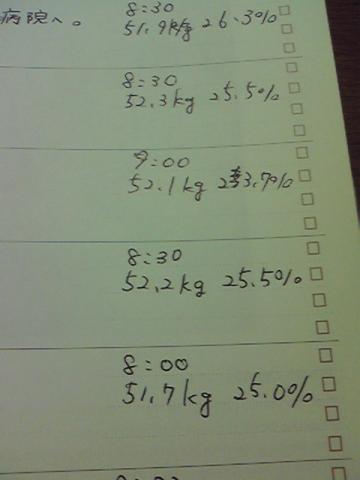 病院へ。
8:30
51.9kg 26.3%
8:30
52.3kg 25.5%
9:00
52.1kg 23.7%
8:30
52.2kg 25.5%
8:00
51.7kg 25.0%